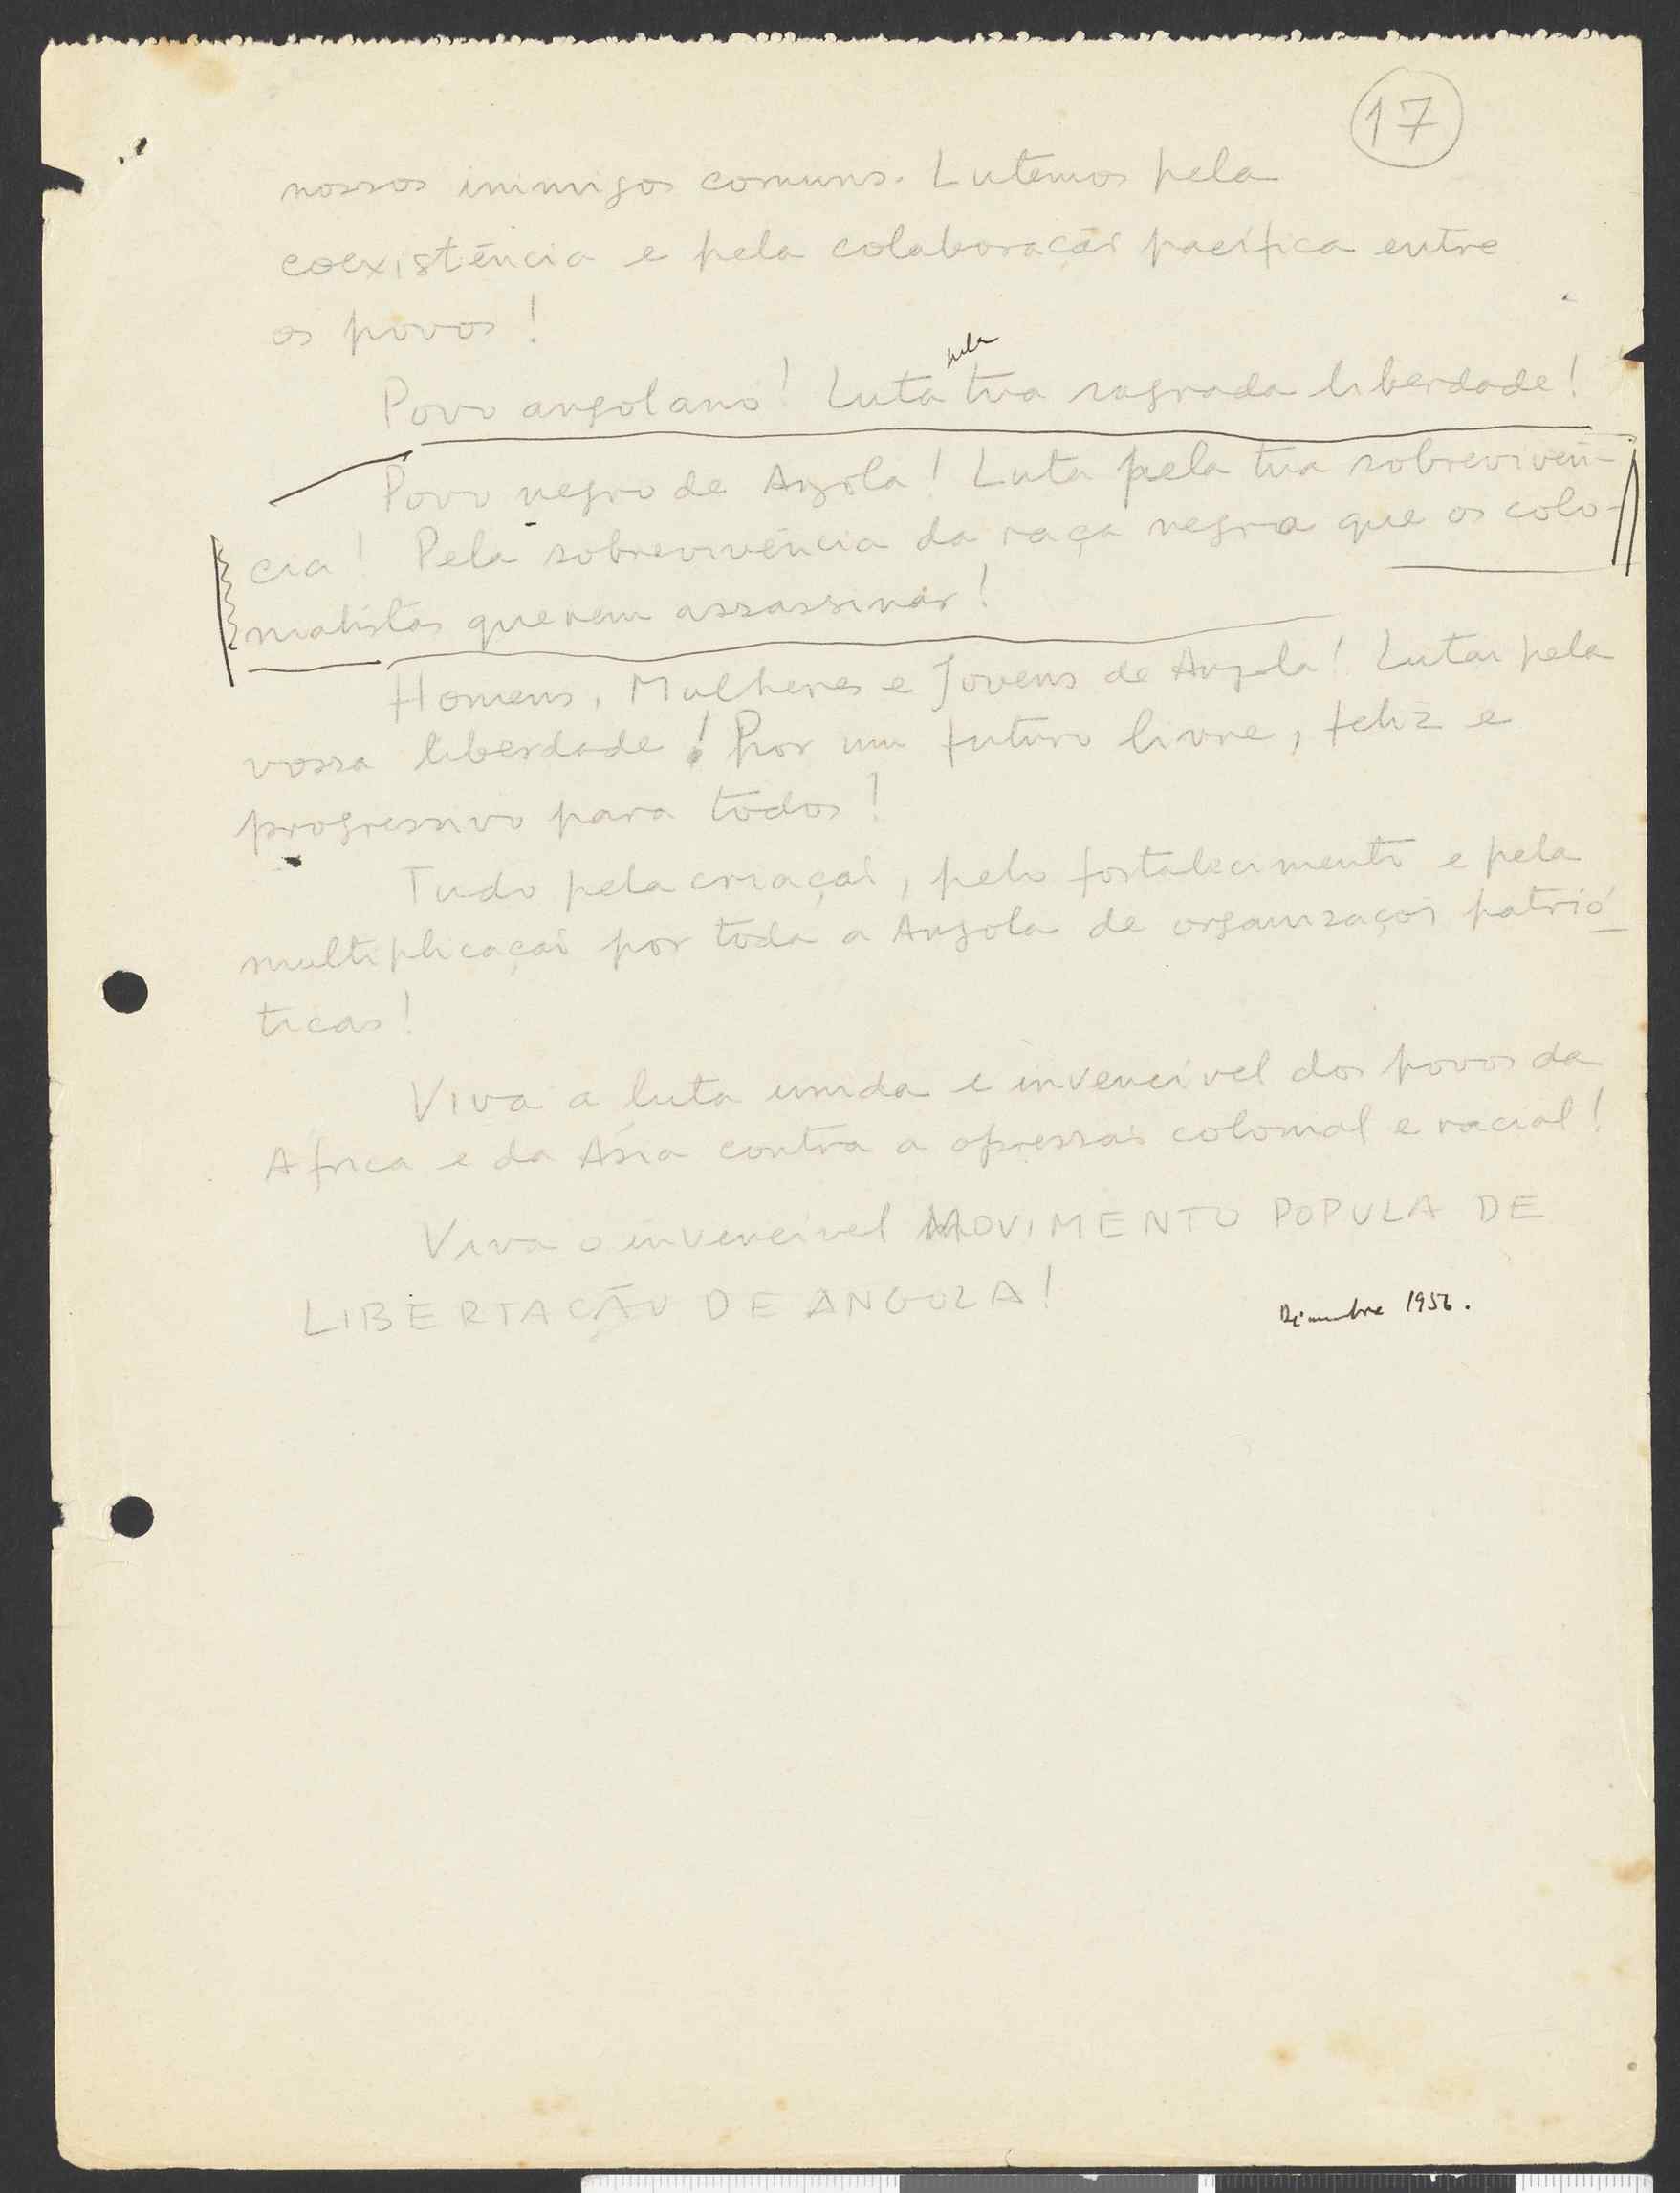 17
nossos inimigos comuns. Lutemos pela
coexistência e pela colaboração pacífica entre
os povos!
Povo angolano! Luta pela tua sagrada liberdade!
Povo negro de Angola! Luta pela tua sobrevivên-
cia! Pela sobrevivência da raça negra que os colo-
nialistas querem assassinar!
Homens, Mulheres e Jovens de Angola! Lutai pela
vossa liberdade! Por um futuro livre, feliz e
progressivo para todos!
Tudo pela criação, pelo fortalecimento e pela
multiplicação por toda a Angola de organizações patrió-
ticas!
Viva a luta unida e invencível dos povos da
Africa e da Ásia contra a opressão colonial e racial!
Viva o invencível MOVIMENTO POPULA DE
LIBERTAÇÃO DE ANGOLA!
Dezembro 1956.